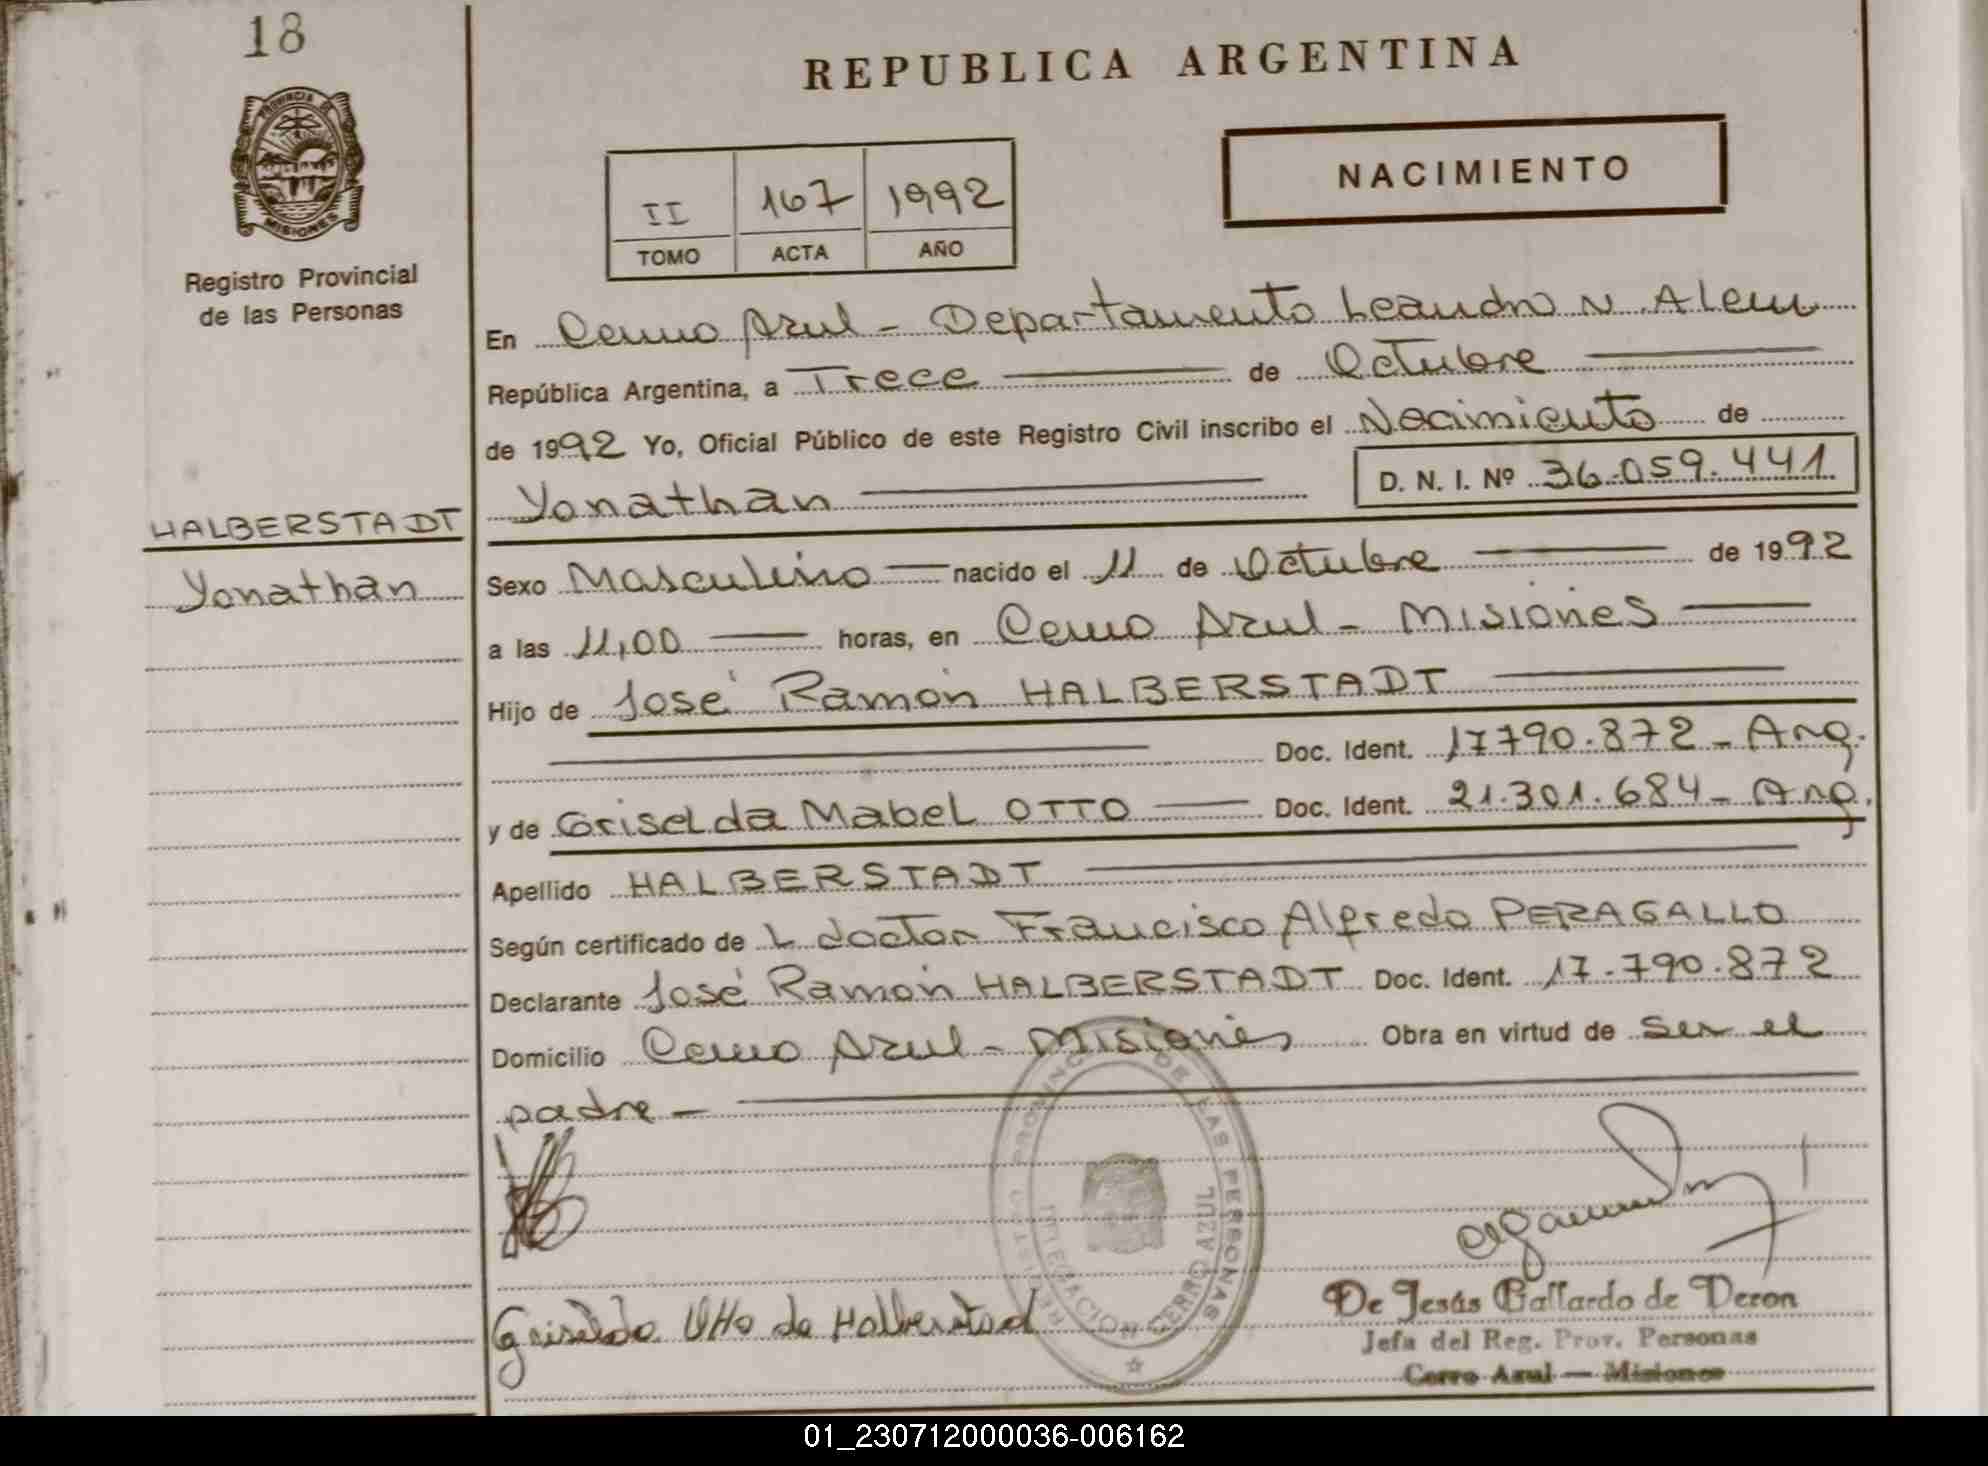 18
REPUBLICA ARGENTINA
PROVINCIA DE
MISIONES
Registro Provincial
de las Personas
NACIMIENTO
II 167 1992
TOMO ACTA AÑO
En Cerro Azul - Departamento Leandro N. Alem
República Argentina, a Trece de Octubre
de 1992 Yo, Oficial Público de este Registro Civil inscribo el Nacimiento de
Yonathan D. N. I. Nº 36.059.441
HALBERSTADT
Yonathan
Sexo Masculino nacido el 11 de Octubre de 1992
a las 11,00 horas, en Cerro Azul - Misiones
Hijo de José Ramón HALBERSTADT
Doc. Ident. 17790.872 - Arg.
y de Griselda Mabel OTTO Doc. Ident. 21.301.684 - Arg.
Apellido HALBERSTADT
Según certificado de L doctor Francisco Alfredo PERAGALLO
Declarante José Ramón HALBERSTADT Doc. Ident. 17.790.872
Domicilio Cerro Azul - Misiones Obra en virtud de ser el
padre -
REGISTRO PROVINCIAL DE LAS PERSONAS
DELEGACION CERRO AZUL
Griselda Otto de Halberstad
De Jesús Gallardo de Deron
Jefa del Reg. Prov. Personas
Cerro Azul — Misiones
01_230712000036-006162